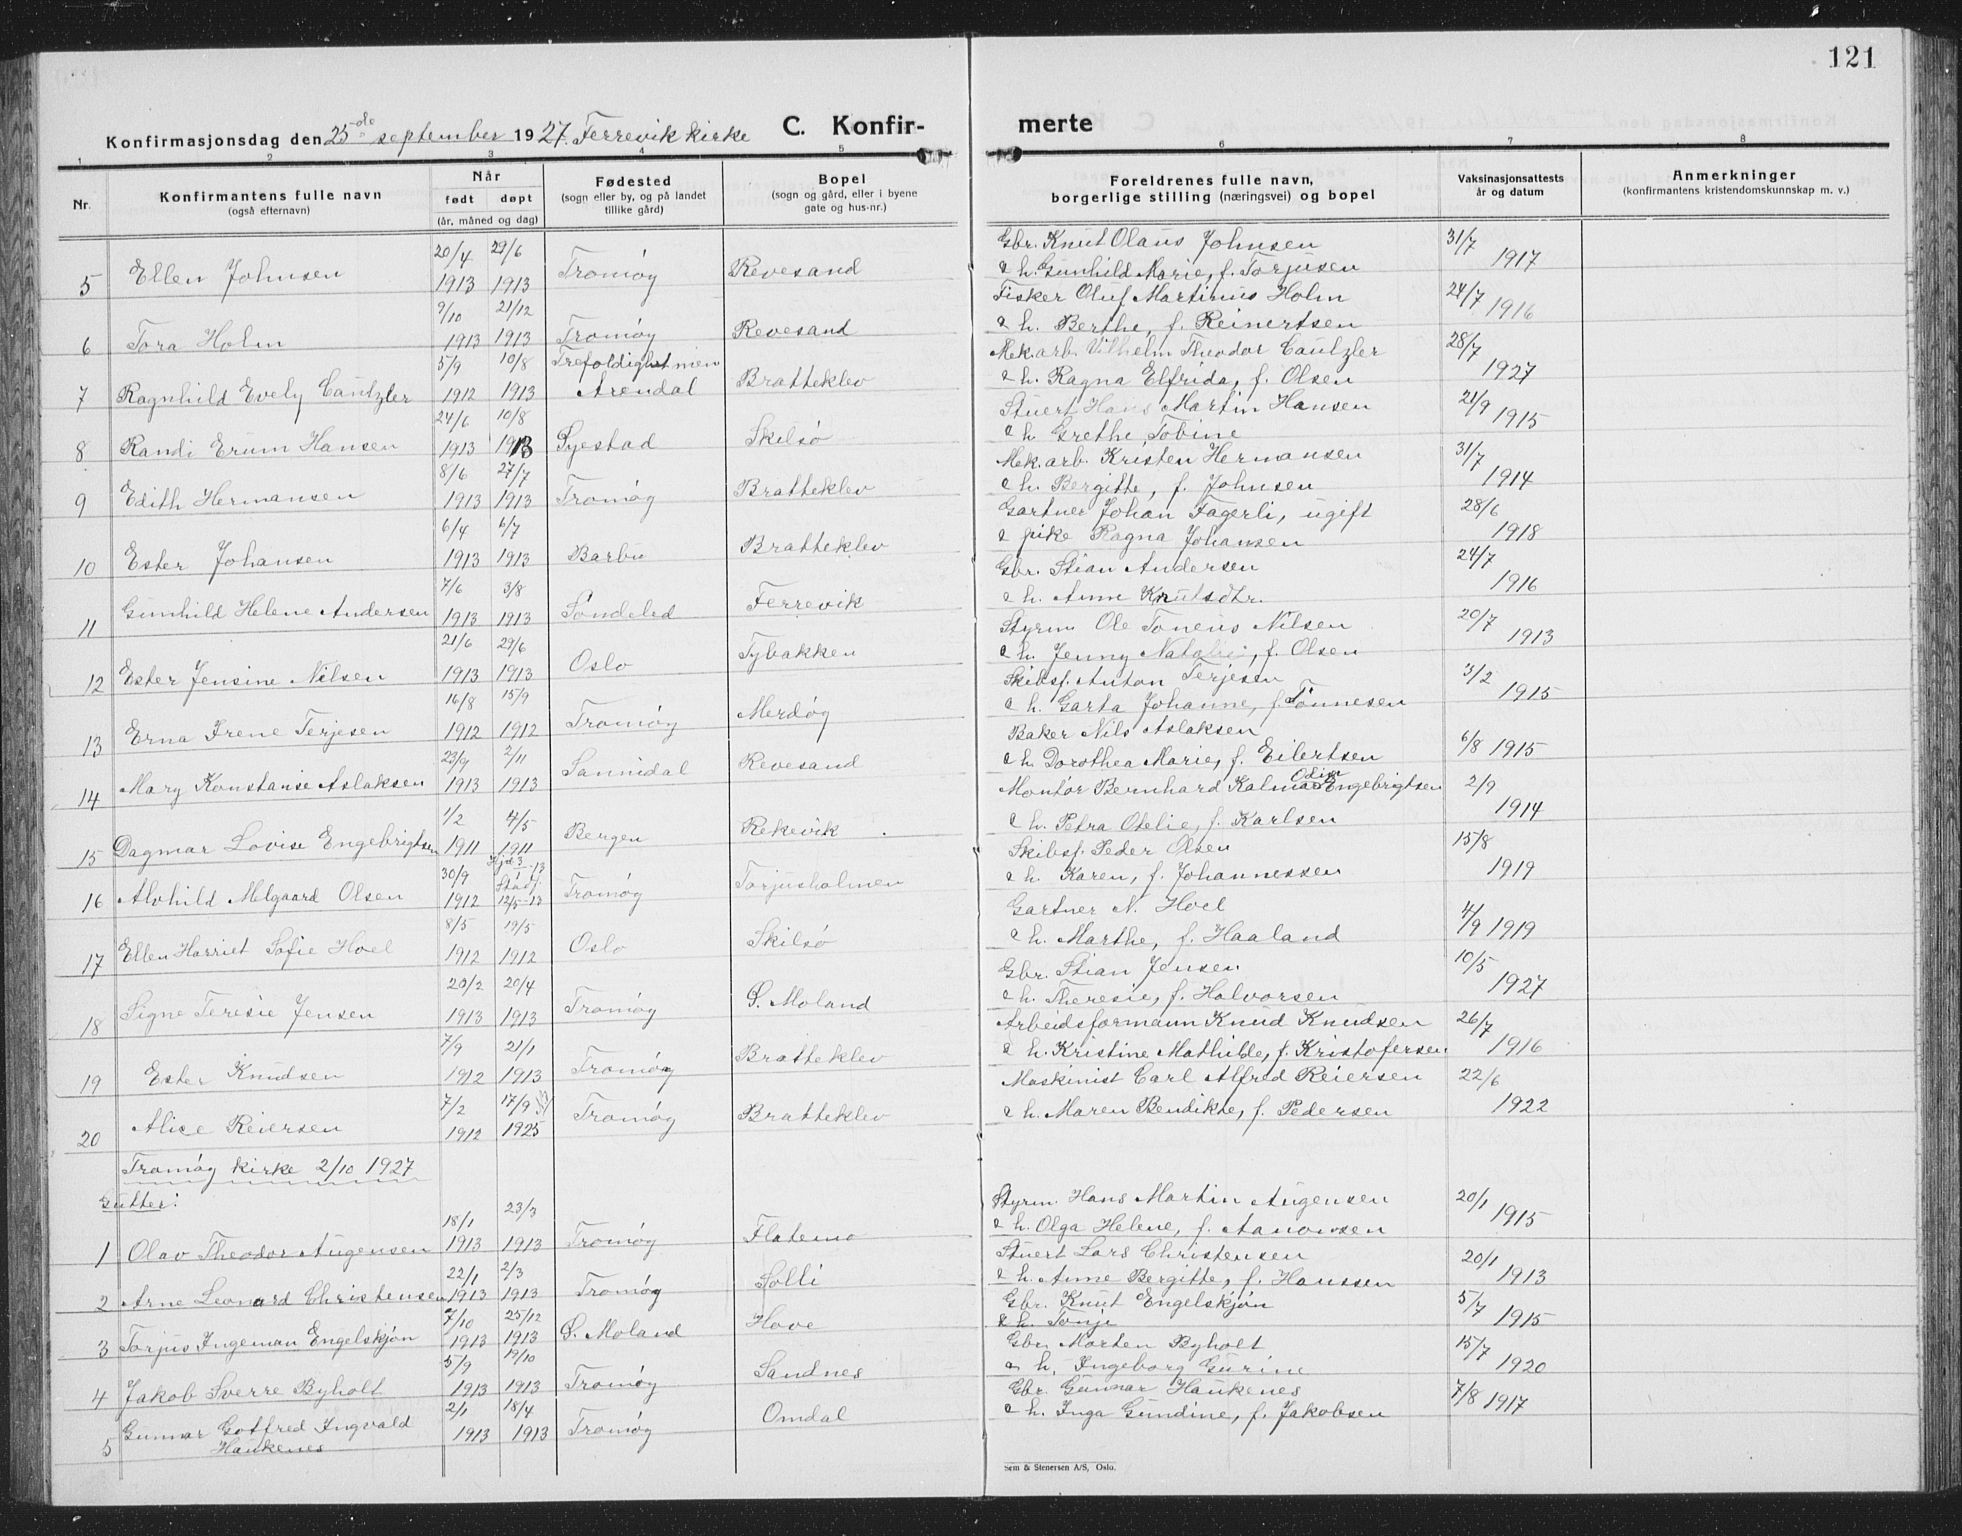 121
Konfirmasjonsdag den 25de september 1927. Færrevik kirke C. Konfirmerte
1 2 3 4 5 6 7 8
Nr. Konfirmantens fulle navn (også efternavn) Når født døpt (år, måned og dag) Fødested (sogn eller by, og på landet tillike gård) Bopel (sogn og gård, eller i byene gate og hus-nr.) Foreldrenes fulle navn, borgerlige stilling (næringsvei) og bopel Vaksinasjonsattests år og datum Anmerkninger (konfirmantens kristendomskunnskap m. v.)
5 Ellen Johnsen 20/4 1913 29/6 1913 Tromøy Revesand Gbr. Knut Olaus Johnsen & h. Gunhild Marie, f. Torjusen 31/7 1917
6 Tora Holm 9/10 1913 21/12 1913 Tromøy Revesand Fisker Oluf Martinius Holm & h. Berthe, f. Reinertsen 24/7 1916
7 Ragnhild Evely Cautzler 5/9 1912 10/8 1913 Arendal Bratteklev Mek.arb. Vilhelm Theodor Cautzler & h. Ragna Elfrida, f. Olsen 28/7 1927
8 Randi Erum Hansen 24/6 1913 10/8 1913 Øyestad Skilsø Stuert Hans Martin Hansen & h. Grethe Tobine 21/9 1915
9 Edith Hermansen 8/6 1913 27/7 1913 Tromøy Bratteklev Mek.arb. Kristen Hermansen & h. Bergitte, f. Johnsen 31/7 1914
10 Ester Johansen 6/4 1913 6/7 1913 Barbu Bratteklev Gartner Johan Fagerli, ugift & pike Ragna Johansen 28/6 1918
11 Gunhild Helene Andersen 7/6 1913 3/8 1913 Søndeled Færrevik Gbr. Stian Andersen & h. Anne Knutsdtr. 24/7 1916
12 Ester Jensine Nilsen 21/6 1913 29/6 1913 Oslo Tybakken Styrm. Ole Tønens Nilsen & h. Jenny Natalie, f. Olsen 20/7 1913
13 Erna Irene Terjesen 16/8 1912 15/9 1912 Tromøy Merdøy Skibsf. Anton Terjesen & h. Garta Johanne, f. Tønnesen 3/2 1915
14 Mary Konstanse Aslaksen 23/9 1913 2/11 1913 Sannidal Revesand Baker Nils Aslaksen & h. Dorothea Marie, f. Eilertsen 6/8 1915
15 Dagmar Lovise Engebrigtsen 1/2 1911 7/5 1911 Bergen Rekevik Montør Bernhard Kalmar Odin Engebrigtsen & h. Petra Otelie, f. Karlsen 2/9 1914
16 Alvhild Melgaard Olsen 30/9 1912 Hjd. 3/1-13 Stadf. 12/5-13 Tromøy Torjusholmen Skibsf. Peder Olsen & h. Karen, f. Johannessen 15/8 1919
17 Ellen Harriet Sofie Hoel 8/5 1912 19/5 1912 Oslo Skilsø Gartner N. Hoel & h. Marthe, f. Haaland 4/9 1919
18 Signe Teresie Jensen 20/2 1913 20/4 1913 Tromøy Ø. Moland Gbr. Stian Jensen & h. Theresie, f. Halvorsen 10/5 1927
19 Ester Knudsen 7/9 1912 21/1 1913 Tromøy Bratteklev Arbeidsformann Knud Knudsen & h. Kristine Mathilde, f. Kristofersen 26/7 1916
20 Alice Reiersen 7/2 1912 17/9 1925 Tromøy Bratteklev Maskinist Carl Alfred Reiersen & h. Maren Bendikte, f. Pedersen 22/6 1922
Tromøy kirke 2/10 1927
Gutter:
1 Olav Theodor Augensen 18/1 1913 23/3 1913 Tromøy Flatemo Styrm. Hans Martin Augensen & h. Olga Helene, f. Aanonsen 20/1 1915
2 Arne Leonard Christensen 22/1 1913 2/3 1913 Tromøy Solli Stuert Lars Christensen & h. Anne Bergitte, f. Hanssen 20/1 1913
3 Torjus Ingeman Engelskjøn 7/10 1913 25/12 1913 Ø. Moland Hove Gbr. Knut Engelskjøn & h. Tonje 5/7 1915
4 Jakob Sverre Byholt 5/9 1913 19/10 1913 Tromøy Sandnes Gbr. Morten Byholt & h. Ingeborg Gurine 15/7 1920
5 Gunnar Gotfred Ingvald Haukenes 2/1 1913 18/4 1913 Tromøy Omdal Gbr. Gunnar Haukenes & h. Inga Gundine, f. Jakobsen 7/8 1917
Sem & Stenersen A/S, Oslo.